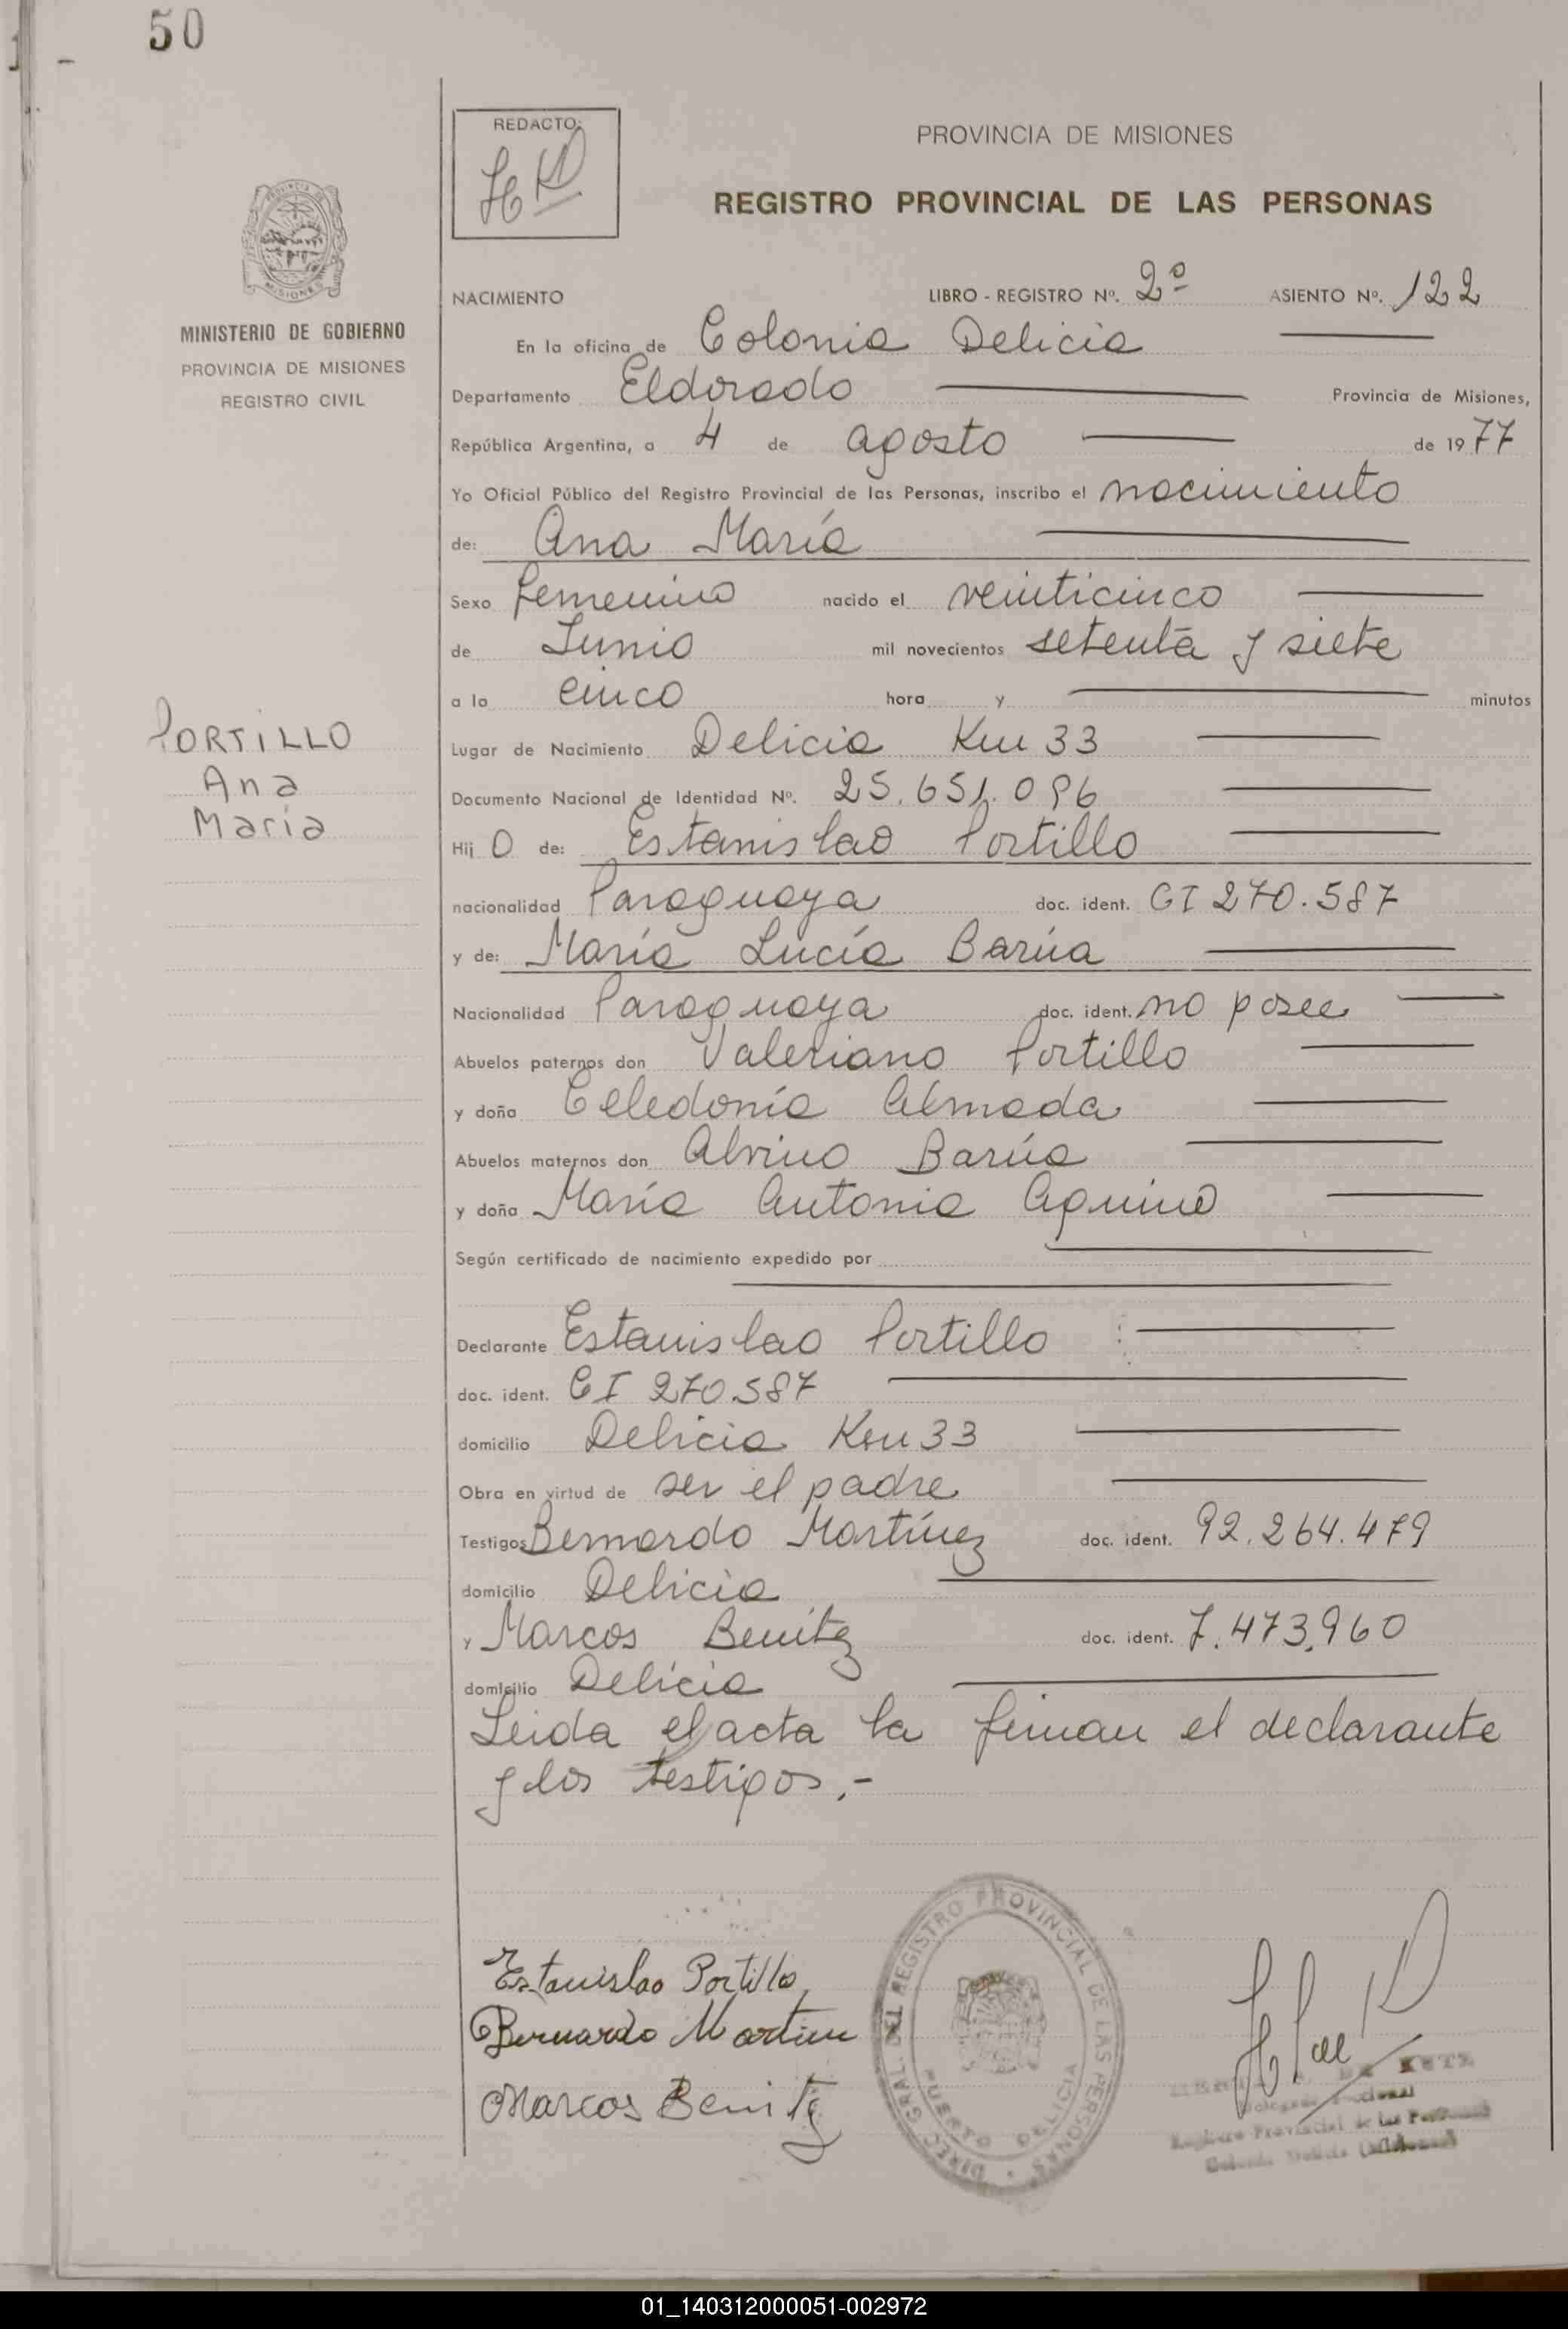 50
REDACTO:
PROVINCIA DE MISIONES
REGISTRO PROVINCIAL DE LAS PERSONAS
MISIONES
MINISTERIO DE GOBIERNO
PROVINCIA DE MISIONES
REGISTRO CIVIL
NACIMIENTO LIBRO - REGISTRO Nº. 2º ASIENTO Nº. 122
En la oficina de Colonia Delicia
Departamento Eldorado Provincia de Misiones,
República Argentina, a 4 de agosto de 1977
Yo Oficial Público del Registro Provincial de las Personas, inscribo el nacimiento
de: Ana María
Sexo femenino nacido el veinticinco
de Junio mil novecientos setenta y siete
a la cinco hora y minutos
PORTILLO
Ana
María
Lugar de Nacimiento Delicia Km 33
Documento Nacional de Identidad Nº. 25.651.096
Hij O de: Estanislao Portillo
nacionalidad Paraguaya doc. ident. CI 270.587
y de: María Lucía Barúa
Nacionalidad Paraguaya doc. ident. no posee
Abuelos paternos don Valeriano Portillo
y doña Celedonía Almada
Abuelos maternos don Alvino Barúa
y doña María Antonia Aquino
Según certificado de nacimiento expedido por
Declarante Estanislao Portillo
doc. ident. CI 270.587
domicilio Delicia Km 33
Obra en virtud de ser el padre
Testigos Bernardo Martínez doc. ident. 92.264.479
domicilio Delicia
y Marcos Benitez doc. ident. 7.473.960
domicilio Delicia
Leida el acta la firman el declarante
y los testigos.-
Estanislao Portillo
Bernardo Martine
Marcos Benitez
DIREC. GRAL. DEL REGISTRO PROVINCIAL DE LAS PERSONAS
PUERTO DELICIA
Registro Provincial de las Personas
Colonia Delicia (Misiones)
01_140312000051-002972